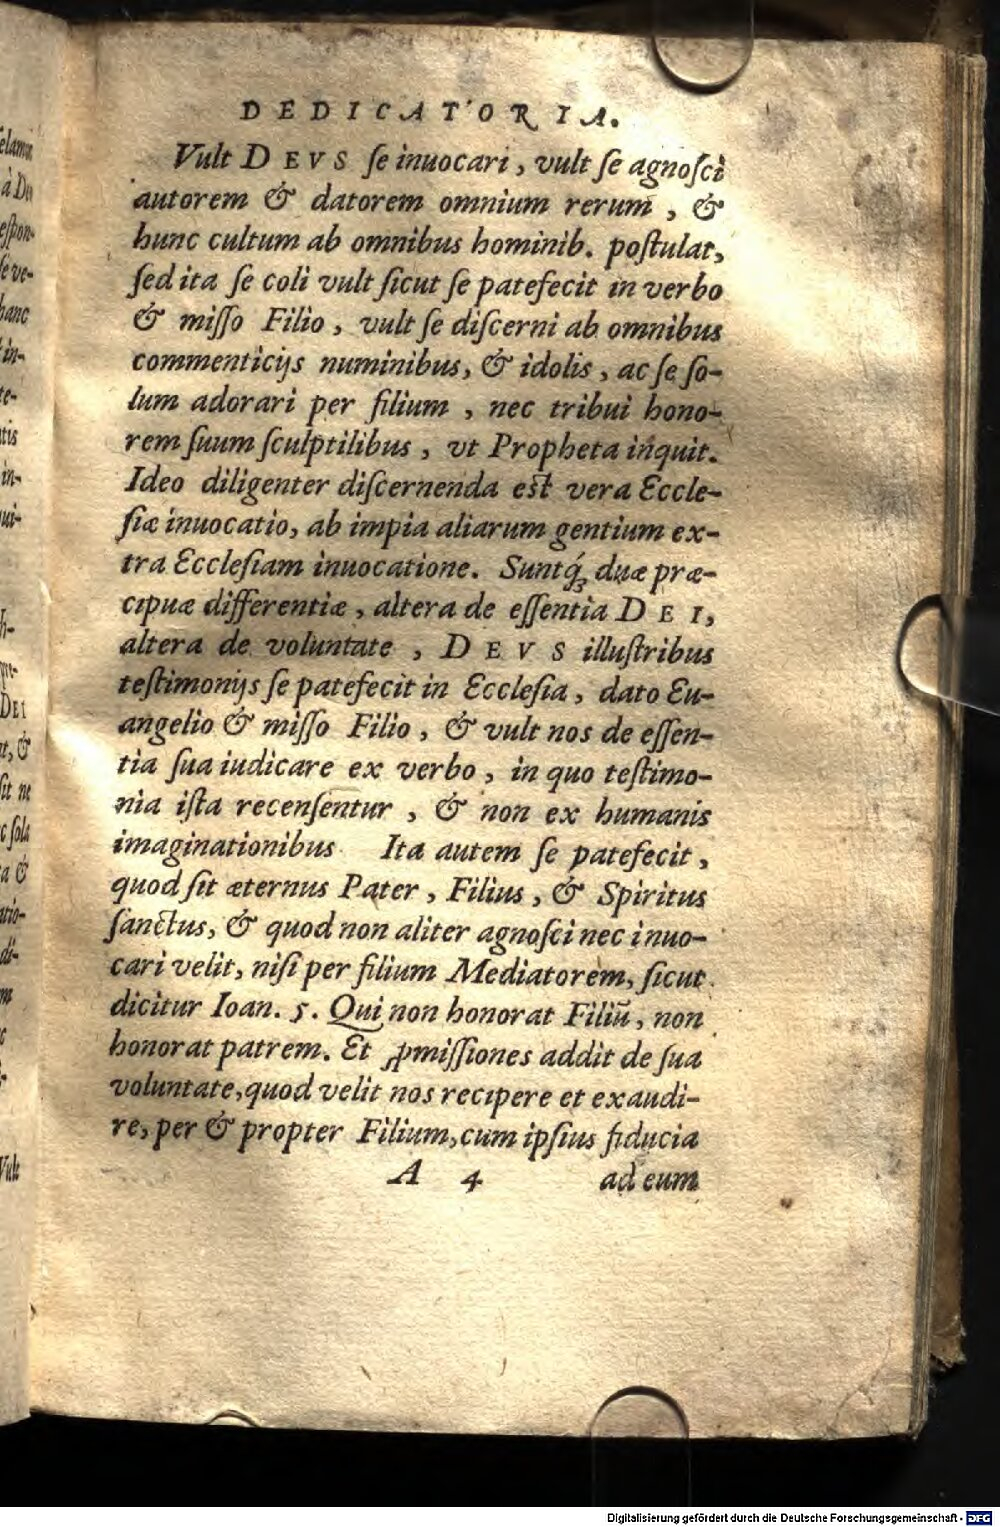 DEDICATORIA.
Vult DEVS ſe inuocari, vult ſe agnoſci
autorem & datorem omnium rerum, &
hunc cultum ab omnibus hominib. poſtulat,
ſed ita ſe coli vult ſicut ſe patefecit in verbo
& miſſo Filio, vult ſe diſcerni ab omnibus
commenticijs numinibus, & idolis, ac ſe ſo-
lum adorari per filium, nec tribui hono-
rem ſuum ſculptilibus, vt Propheta inquit.
Ideo diligenter diſcernenda eſt vera Eccle-
ſiæ inuocatio, ab impia aliarum gentium ex-
tra Eccleſiam inuocatione. Suntq́ꝫ duæ præ-
cipuæ differentiæ, altera de eſſentia DEI,
altera de voluntate, DEVS illuſtribus
teſtimonijs ſe patefecit in Eccleſia, dato Eu-
angelio & miſſo Filio, & vult nos de eſſen-
tia ſua iudicare ex verbo, in quo teſtimo-
nia iſta recenſentur, & non ex humanis
imaginationibus Ita autem ſe patefecit,
quod ſit æternus Pater, Filius, & Spiritus
ſanctus, & quod non aliter agnoſci nec inuo-
cari velit, niſi per filium Mediatorem, ſicut
dicitur Ioan. 5. Qui non honorat Filiū, non
honorat patrem. Et ꝓmiſſiones addit de ſua
voluntate, quod velit nos recipere et exaudi-
re, per & propter Filium, cum ipſius fiducia
A 4 ad eum
Digitalisierung gefördert durch die Deutsche Forschungsgemeinschaft - DFG